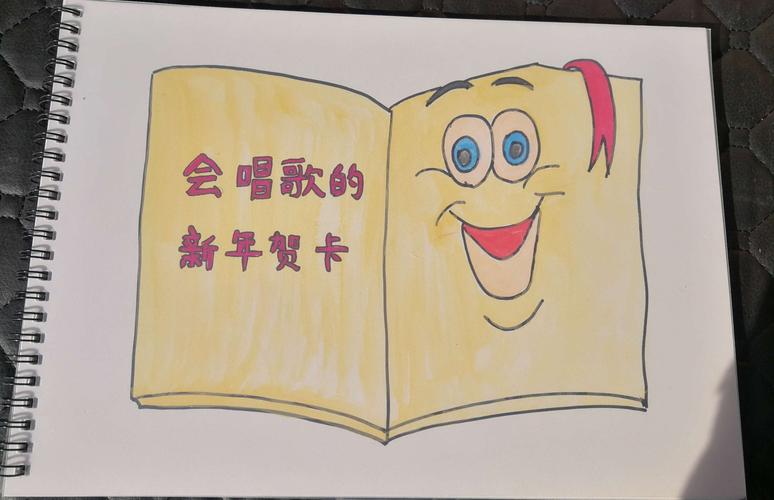 会唱歌的
新年贺卡